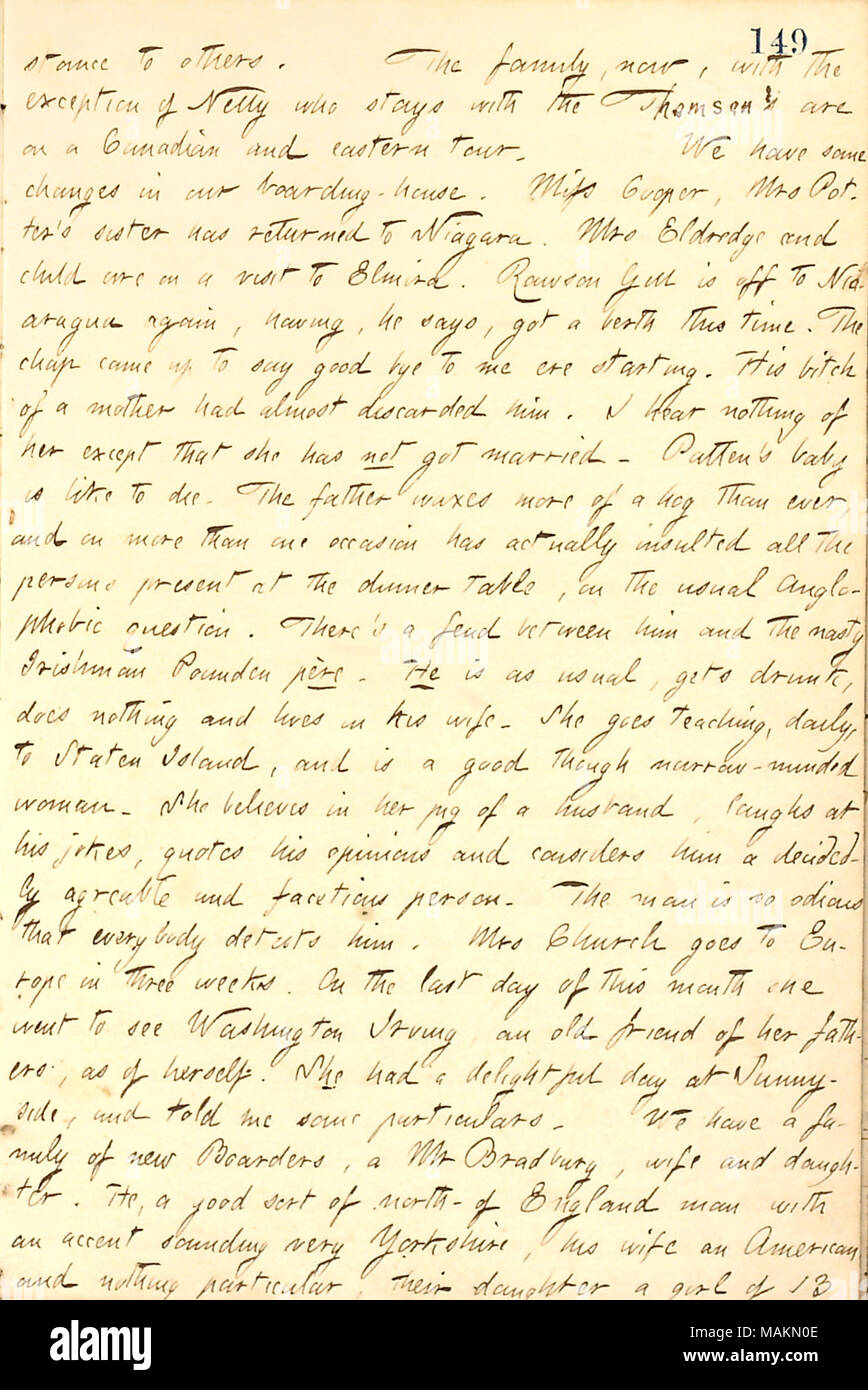 149
stance to others. The family, now, with the
exception of Nelly who stays with the Thomson's are
on a Canadian and eastern tour. We have some
changes in our boarding-house. Miss Cooper, Mrs Pot-
ter's sister has returned to Niagara. Mrs Eldredge and
child are on a visit to Elmira. Rawson Gill is off to Nic-
aragua again, having, he says, got a berth this time. The
chap came up to say good bye to me ere starting. His bitch
of a mother had almost discarded him. I hear nothing of
her except that she has not got married - Patten's baby
is like to die. The father waxes more of a hog than ever,
and on more than one occasion has actually insulted all the
persons present at the dinner table, on the usual Anglo-
phobic question. There's a feud between him and the nasty
Irishman Pounden père. He is as usual, gets drunk,
does nothing and lives on his wife. She goes teaching, daily,
to Staten Island, and is a good though narrow-minded
woman. She believes in her pig of a husband, laughs at
his jokes, quotes his opinions and considers him a decided-
ly agreable and facetious person. The man is so odious
that everybody detests him. Mrs Church goes to Eu-
rope in three weeks. On the last day of this month she
went to see Washington Irving, an old friend of her fath-
ers, as of herself. She had a delightful day at Sunny-
side, and told me some particulars. We have a fa-
mily of new Boarders, a Mr Bradbury, wife and daugh-
ter. He, a good sort of north-of England man with
an accent sounding very Yorkshire, his wife an American
and nothing particular, their daughter a girl of 13
alamy
Image ID: MAKN0E
www.alamy.com